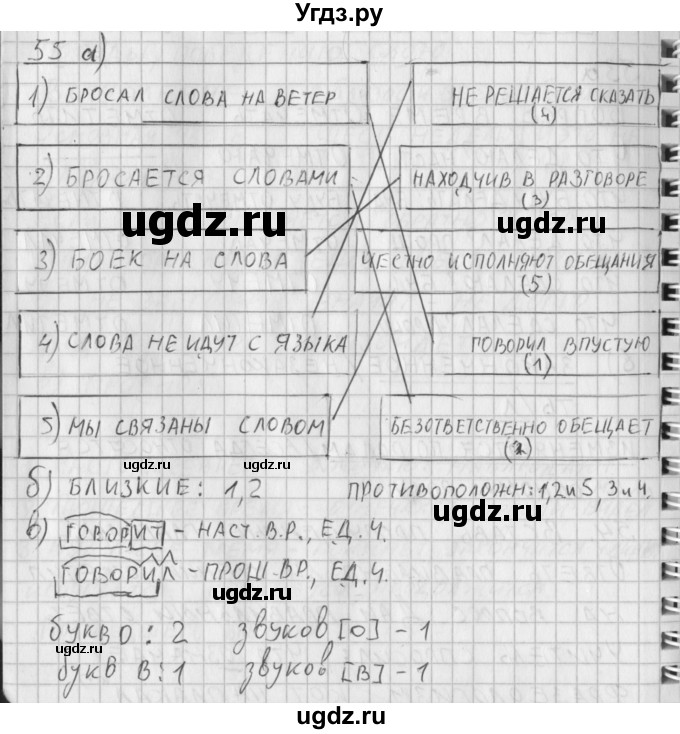 Угдз.ру
55 а)
1) БРОСАЛ СЛОВА НА ВЕТЕР
НЕ РЕШАЕТСЯ СКАЗАТЬ
(4)
2) БРОСАЕТСЯ СЛОВАМИ
НАХОДЧИВ В РАЗГОВОРЕ
(3)
ugdz.ru
ugdz.ru
3) БОЕК НА СЛОВА
ЧЕСТНО ИСПОЛНЯЮТ ОБЕЩАНИЯ
(5)
4) СЛОВА НЕ ИДУТ С ЯЗЫКА
ГОВОРИЛ ВПУСТУЮ
(1)
5) МЫ СВЯЗАНЫ СЛОВОМ
БЕЗОТВЕТСТВЕННО ОБЕЩАЕТ
(2)
ugdz.ru
ugdz.ru
б) БЛИЗКИЕ: 1,2 ПРОТИВОПОЛОЖН: 1,2 и 5, 3 и 4.
ugdz.ru
в) ГОВОРИТ - НАСТ. ВР., ЕД. Ч.
ГОВОРИЛ - ПРОШ. ВР., ЕД. Ч.
ugdz.ru
букв о: 2 звуков [о] - 1
ugdz.ru
букв в: 1 звуков [в] - 1
ugdz.ru
ugdz.ru